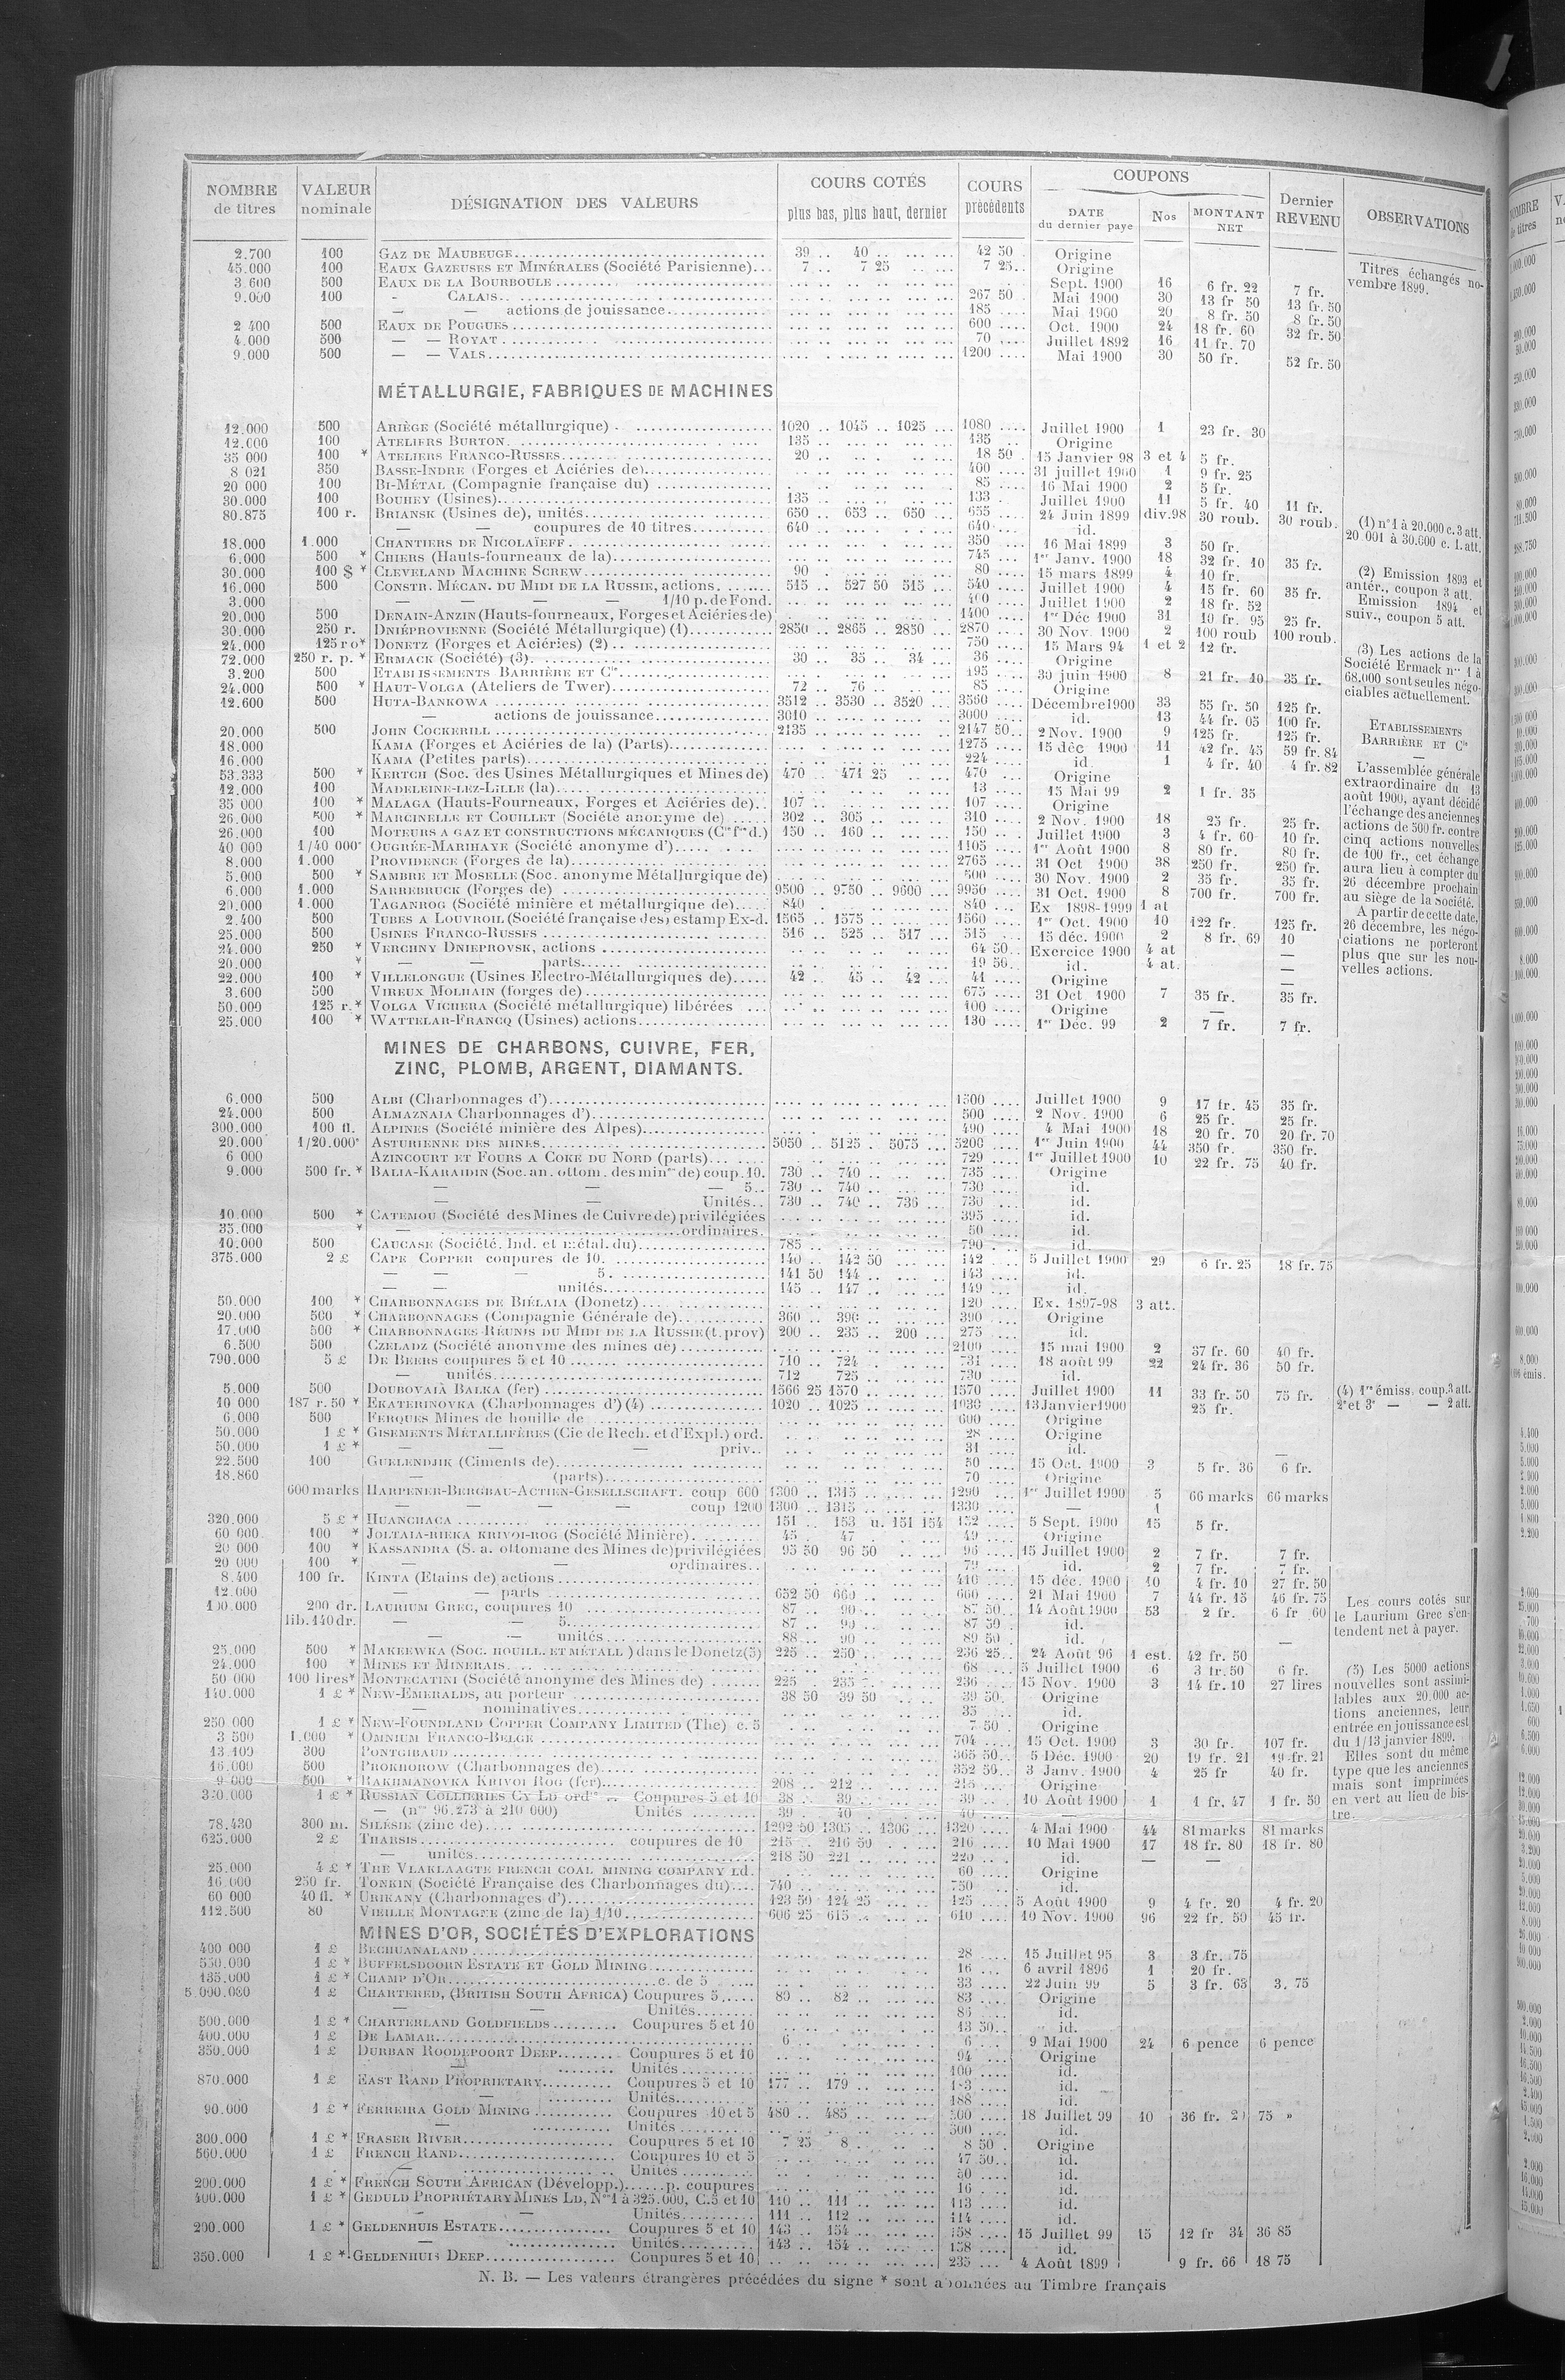 NOMBRE de titres | VALEUR nominale | DÉSIGNATION DES VALEURS | COURS COTÉS plus bas, plus haut, dernier | COURS précédents | COUPONS DATE du dernier paye | Nos | MONTANT NET | Dernier REVENU | OBSERVATIONS
2.700 100 GAZ DE MAUBEUGE 39 .. 40 .. 42 50 Origine
45.000 100 EAUX GAZEUSES ET MINÉRALES (Société Parisienne) 7 .. 7 25 7 25 Origine
3 600 500 EAUX DE LA BOURBOULE Sept. 1900 16 6 fr. 22 7 fr.
9.000 100 - CALAIS 267 50 Mai 1900 30 13 fr 50 13 fr. 50
— — actions de jouissance 185 Mai 1900 20 8 fr. 50 8 fr. 50
2 400 500 EAUX DE POUGUES 600 Oct. 1900 24 18 fr. 60 32 fr. 50
4.000 500 — — ROYAT 70 Juillet 1892 16 11 fr. 70
9.000 500 — — VALS 1200 Mai 1900 30 50 fr. 52 fr. 50
Titres échangés novembre 1899.
MÉTALLURGIE, FABRIQUES DE MACHINES
12.000 500 ARIÈGE (Société métallurgique) 1020 .. 1045 .. 1025 1080 Juillet 1900 1 23 fr. 30
12.000 100 ATELIERS BURTON 135 135 Origine
35 000 100 * ATELIERS FRANCO-RUSSES 20 18 50 15 Janvier 98 3 et 4 5 fr.
8 021 350 BASSE-INDRE (Forges et Aciéries de) 400 31 juillet 1900 1 9 fr. 25
20 000 100 BI-MÉTAL (Compagnie française du) 85 16 Mai 1900 2 5 fr.
30.000 100 BOUHEY (Usines) 135 133 Juillet 1900 11 5 fr. 40 11 fr.
80.875 100 r. BRIANSK (Usines de), unités 650 .. 653 .. 650 655 24 Juin 1899 div.98 30 roub. 30 roub.
— — coupures de 10 titres 640 640 id.
18.000 1.000 CHANTIERS DE NICOLAÏEFF 350 16 Mai 1899 3 50 fr.
6.000 500 * CHIERS (Hauts-fourneaux de la) 745 1er Janv. 1900 18 32 fr. 10 35 fr.
30.000 100 $ * CLEVELAND MACHINE SCREW 90 80 15 mars 1899 4 10 fr.
16.000 500 CONSTR. MÉCAN. DU MIDI DE LA RUSSIE, actions 515 527 50 515 540 Juillet 1900 4 15 fr. 60 35 fr.
3.000 — — — — 1/10 p. de Fond. 400 Juillet 1900 2 18 fr. 52
20.000 500 DENAIN-ANZIN (Hauts-fourneaux, Forges et Aciéries de) 1400 1er Déc 1900 31 19 fr. 95 25 fr.
30.000 250 r. DNIÉPROVIENNE (Société Métallurgique) (1) 2850 .. 2865 .. 2850 2870 30 Nov. 1900 2 100 roub 100 roub.
24.000 125 ro* DONETZ (Forges et Aciéries) (2) 750 15 Mars 94 1 et 2 12 fr.
72.000 250 r. p. * ERMACK (Société) (3) 30 .. 35 .. 34 36 Origine
3.200 500 ETABLISSEMENTS BARRIÈRE ET Cie 195 30 juin 1900 8 21 fr. 10 35 fr.
24.000 500 * HAUT-VOLGA (Ateliers de Twer) 72 .. 76 85 Origine
12.600 500 HUTA-BANKOWA 3512 .. 3530 .. 3520 3560 Décembre 1900 33 55 fr. 50 125 fr.
— actions de jouissance 3010 3000 id. 13 44 fr. 05 100 fr.
20.000 500 JOHN COCKERILL 2135 2147 50 2 Nov. 1900 9 125 fr. 125 fr.
18.000 KAMA (Forges et Aciéries de la) (Parts) 1275 15 déc 1900 11 42 fr. 45 59 fr. 84
16.000 KAMA (Petites parts) 224 id. 1 4 fr. 40 4 fr. 82
53.333 500 * KERTCH (Soc. des Usines Métallurgiques et Mines de) 470 .. 471 25 470 Origine
12.000 100 MADELEINE-LEZ-LILLE (la) 13 15 Mai 99 2 1 fr. 35
35 000 100 * MALAGA (Hauts-Fourneaux, Forges et Aciéries de) 107 107 Origine
26.000 500 * MARCINELLE ET COUILLET (Société anonyme de) 302 .. 305 310 2 Nov. 1900 18 25 fr. 25 fr.
26.000 100 MOTEURS A GAZ ET CONSTRUCTIONS MÉCANIQUES (Cie fse d.) 150 .. 160 150 Juillet 1900 3 4 fr. 60 10 fr.
40 000 1/40 000e OUGRÉE-MARIHAYE (Société anonyme d') 1105 1er Août 1900 8 80 fr. 80 fr.
8.000 1.000 PROVIDENCE (Forges de la) 2765 31 Oct 1900 38 250 fr. 250 fr.
5.000 500 * SAMBRE ET MOSELLE (Soc. anonyme Métallurgique de) 500 30 Nov. 1900 2 35 fr. 35 fr.
6.000 1.000 SARREBRUCK (Forges de) 9500 .. 9750 .. 9600 9950 31 Oct. 1900 8 700 fr. 700 fr.
20.000 1.000 TAGANROG (Société minière et métallurgique de) 840 840 Ex 1898-1999 1 at
2.400 500 TUBES A LOUVROIL (Société française des) estamp Ex-d. 1565 .. 1575 1560 1er Oct. 1900 10 122 fr. 125 fr.
25.000 500 USINES FRANCO-RUSSES 516 .. 525 .. 517 515 15 déc. 1900 2 8 fr. 69 10
24.000 250 * VERCHNY DNIEPROVSK, actions 64 50 Exercice 1900 4 at —
20.000 * — — parts 19 50 id. 4 at. —
22.000 100 * VILLELONGUE (Usines Electro-Métallurgiques de) 42 .. 45 .. 42 41 Origine —
3.600 500 VIREUX MOLHAIN (forges de) 675 31 Oct 1900 7 35 fr. 35 fr.
50.000 125 r.* VOLGA VICHERA (Société métallurgique) libérées 100 Origine —
25.000 100 * WATTELAR-FRANCQ (Usines) actions 130 1er Déc. 99 2 7 fr. 7 fr.
(1) n° 1 à 20.000 c. 3 att.
20 001 à 30.000 c. 1. att.
(2) Emission 1893 et
antér., coupon 3 att.
Emission 1894 et
suiv., coupon 5 att.
(3) Les actions de la
Société Ermack nos 1 à
68.000 sont seules négo-
ciables actuellement.
ETABLISSEMENTS
BARRIÈRE ET Cie
—
L'assemblée générale
extraordinaire du 13
août 1900, ayant décidé
l'échange des anciennes
actions de 500 fr. contre
cinq actions nouvelles
de 100 fr., cet échange
aura lieu à compter du
26 décembre prochain
au siège de la Société.
A partir de cette date,
26 décembre, les négo-
ciations ne porteront
plus que sur les nou-
velles actions.
MINES DE CHARBONS, CUIVRE, FER,
ZINC, PLOMB, ARGENT, DIAMANTS.
6.000 500 ALBI (Charbonnages d') 1500 Juillet 1900 9 17 fr. 45 35 fr.
24.000 500 ALMAZNAIA Charbonnages d') 500 2 Nov. 1900 6 25 fr. 25 fr.
300.000 100 fl. ALPINES (Société minière des Alpes) 490 4 Mai 1900 18 20 fr. 70 20 fr. 70
20.000 1/20.000e ASTURIENNE DES MINES 5050 .. 5125 .. 5075 5200 1er Juin 1900 44 350 fr. 350 fr.
6 000 AZINCOURT ET FOURS A COKE DU NORD (parts) 729 1er Juillet 1900 10 22 fr. 75 40 fr.
9.000 500 fr. * BALIA-KARAIDIN (Soc. an. ottom. des mines de) coup. 10. 730 .. 740 735 Origine
— — 5 730 .. 740 730 id.
— — Unités 730 .. 740 .. 736 730 id.
10.000 500 * CATEMOU (Société des Mines de Cuivre de) privilégiées 395 id.
35.000 * — ordinaires. 50 id.
10.000 500 CAUCASE (Société. Ind. et métal. du) 785 790 id.
375.000 2 £ CAPE COPPER coupures de 10. 140 .. 142 50 142 5 Juillet 1900 29 6 fr. 25 18 fr. 75
— — — 5. 141 50 144 143 id.
— — unités 145 .. 147 149 id.
50.000 100 * CHARBONNAGES DE BIÉLAIA (Donetz) 120 Ex. 1897-98 3 att.
20.000 500 * CHARBONNAGES (Compagnie Générale de) 360 .. 390 390 Origine
17.000 500 * CHARBONNAGES RÉUNIS DU MIDI DE LA RUSSIE (t. prov) 200 .. 235 .. 200 275 id.
6.500 500 CZELADZ (Société anonyme des mines de) 2100 15 mai 1900 2 37 fr. 60 40 fr.
790.000 5 £ DE BEERS coupures 5 et 10 710 .. 724 731 18 août 99 22 24 fr. 36 50 fr.
— unités 712 725 730 id.
5.000 500 DOUBOVAIÀ BALKA (fer) 1566 25 1570 1570 Juillet 1900 11 33 fr. 50 75 fr.
10 000 187 r. 50 * EKATERINOVKA (Charbonnages d') (4) 1020 .. 1025 1030 13 Janvier 1900 25 fr.
6.000 500 FERQUES Mines de houille de 600 Origine
50.000 1 £ * GISEMENTS MÉTALLIFÈRES (Cie de Rech. et d'Expl.) ord. 28 Origine
50.000 1 £ * — — — priv. 31 id. —
22.500 100 GUELENDJIK (Ciments de) 50 15 Oct. 1900 3 5 fr. 36 6 fr.
18.860 — (parts) 70 Origine
600 marks HARPENER-BERGBAU-ACTIEN-GESELLSCHAFT. coup 600 1300 .. 1315 1290 1er Juillet 1900 5 66 marks 66 marks
— — — — coup 1200 1300 .. 1315 1330 — 1
320.000 5 £ * HUANCHACA 151 .. 153 u. 151 154 152 5 Sept. 1900 15 5 fr.
60 000 100 * JOLTAIA-RIEKA KRIVOI-ROG (Société Minière) 45 47 49 Origine
20 000 100 * KASSANDRA (S. a. ottomane des Mines de) privilégiées 95 50 96 50 96 15 Juillet 1900 2 7 fr. 7 fr.
20 000 100 * — — ordinaires 79 id. 2 7 fr. 7 fr.
8.400 100 fr. KINTA (Etains de) actions 410 15 déc. 1900 10 4 fr. 10 27 fr. 50
12.000 — — parts 652 50 660 660 21 Mai 1900 7 44 fr. 15 46 fr. 75
100.000 200 dr. LAURIUM GREC, coupures 10 87 .. 90 87 50 14 Août 1900 53 2 fr. 6 fr 60
lib. 140 dr. — — 5 87 .. 90 87 50 id.
— — unités 88 .. 90 89 50 id. —
25.000 500 * MAKEEWKA (SOC. HOUILL. ET MÉTALL ) dans le Donetz (5) 225 .. 250 236 25 24 Août 96 1 est. 42 fr. 50
24.000 100 * MINES ET MINERAIS 68 5 Juillet 1900 6 3 fr. 50 6 fr.
50 000 100 lires* MONTECATINI (Société anonyme des Mines de) 225 235 236 15 Nov. 1900 3 14 fr. 10 27 lires
140.000 1 £ * NEW-EMERALDS, au porteur 38 50 39 50 39 50 Origine
— nominatives 35 id.
250 000 1 £ * NEW-FOUNDLAND COPPER COMPANY LIMITED (The) c. 5 7 50 Origine
3 500 1.000 * OMNIUM FRANCO-BELGE 704 15 Oct. 1900 3 30 fr. 107 fr.
13 109 300 PONTGIBAUD 365 50 5 Déc. 1900 20 19 fr. 21 19 fr. 21
16.000 500 PROKHOROW (Charbonnages de) 352 50 3 Janv. 1900 4 25 fr 40 fr.
9 000 500 * RAKHMANOVKA KRIVOI ROG (fer) 208 .. 212 215 Origine
1 £ * RUSSIAN COLLIERIES CY LD ordre Coupures 5 et 10 38 39 39 10 Août 1900 1 1 fr. 47 1 fr. 50
— (nos 96.273 à 210 000) Unités 39 40 40 —
78.430 300 m. SILÉSIE (zinc de) 1292 50 1305 .. 1306 1320 4 Mai 1900 44 81 marks 81 marks
625.000 2 £ THARSIS coupures de 10 215 216 50 216 10 Mai 1900 17 18 fr. 80 18 fr. 80
— unités 218 50 221 220 id. — —
25.000 4 £ * THE VLAKLAAGTE FRENCH COAL MINING COMPANY Ld. 60 Origine
16.000 250 fr. TONKIN (Société Française des Charbonnages du) 740 750 id.
60 000 40 fl. * URIKANY (Charbonnages d') 123 50 124 25 125 5 Août 1900 9 4 fr. 20 4 fr. 20
112.500 80 VIEILLE MONTAGNE (zinc de la) 1/10 606 25 615 610 10 Nov. 1900 96 22 fr. 50 45 fr.
(4) 1re émiss. coup. 3 att.
2e et 3e — — 2 att.
Les cours cotés sur
le Laurium Grec s'en-
tendent net à payer.
(5) Les 5000 actions
nouvelles sont assimi-
lables aux 20.000 ac-
tions anciennes, leur
entrée en jouissance est
du 1/13 janvier 1899.
Elles sont du même
type que les anciennes
mais sont imprimées
en vert au lieu de bis-
tre.
MINES D'OR, SOCIÉTÉS D'EXPLORATIONS
400 000 1 £ BECHUANALAND 28 15 Juillet 95 3 3 fr. 75
550.000 1 £ * BUFFELSDOORN ESTATE ET GOLD MINING 16 6 avril 1896 1 20 fr.
135.000 1 £ * CHAMP D'OR c. de 5 33 22 Juin 99 5 3 fr. 63 3. 75
5 000.000 1 £ CHARTERED, (BRITISH SOUTH AFRICA) Coupures 5 80 .. 82 83 Origine
— — Unités 86 id.
500.000 1 £ * CHARTERLAND GOLDFIELDS Coupures 5 et 10 13 50 id.
400.000 1 £ DE LAMAR 6 6 9 Mai 1900 24 6 pence 6 pence
350.000 1 £ DURBAN ROODEPOORT DEEP Coupures 5 et 10 94 Origine
— Unités 100 id.
870.000 1 £ EAST RAND PROPRIETARY Coupures 5 et 10 177 .. 179 id.
— Unités 188 id.
90.000 1 £ * FERREIRA GOLD MINING Coupures 10 et 5 480 .. 485 500 18 Juillet 99 10 36 fr. 75 »
— Unités 500 id.
300.000 1 £ * FRASER RIVER Coupures 5 et 10 7 25 8 8 50 Origine
560.000 1 £ FRENCH RAND Coupures 10 et 5 47 50 id.
Unités 50 id.
200.000 1 £ * FRENCH SOUTH AFRICAN (Développ.) p. coupures 16 id.
400.000 1 £ * GEDULD PROPRIÉTARY MINES LD, Nos 1 à 325.000, C. 5 et 10 110 .. 111 113 id.
— — Unités 111 .. 112 114 id.
200.000 1 £ * GELDENHUIS ESTATE Coupures 5 et 10 143 .. 154 158 15 Juillet 99 15 12 fr 34 36 85
— Unités 143 .. 154 158 id.
350.000 1 £ * GELDENHUIS DEEP Coupures 5 et 10 235 4 Août 1899 9 fr. 66 18 75
N. B. — Les valeurs étrangères précédées du signe * sont abonnées au Timbre français